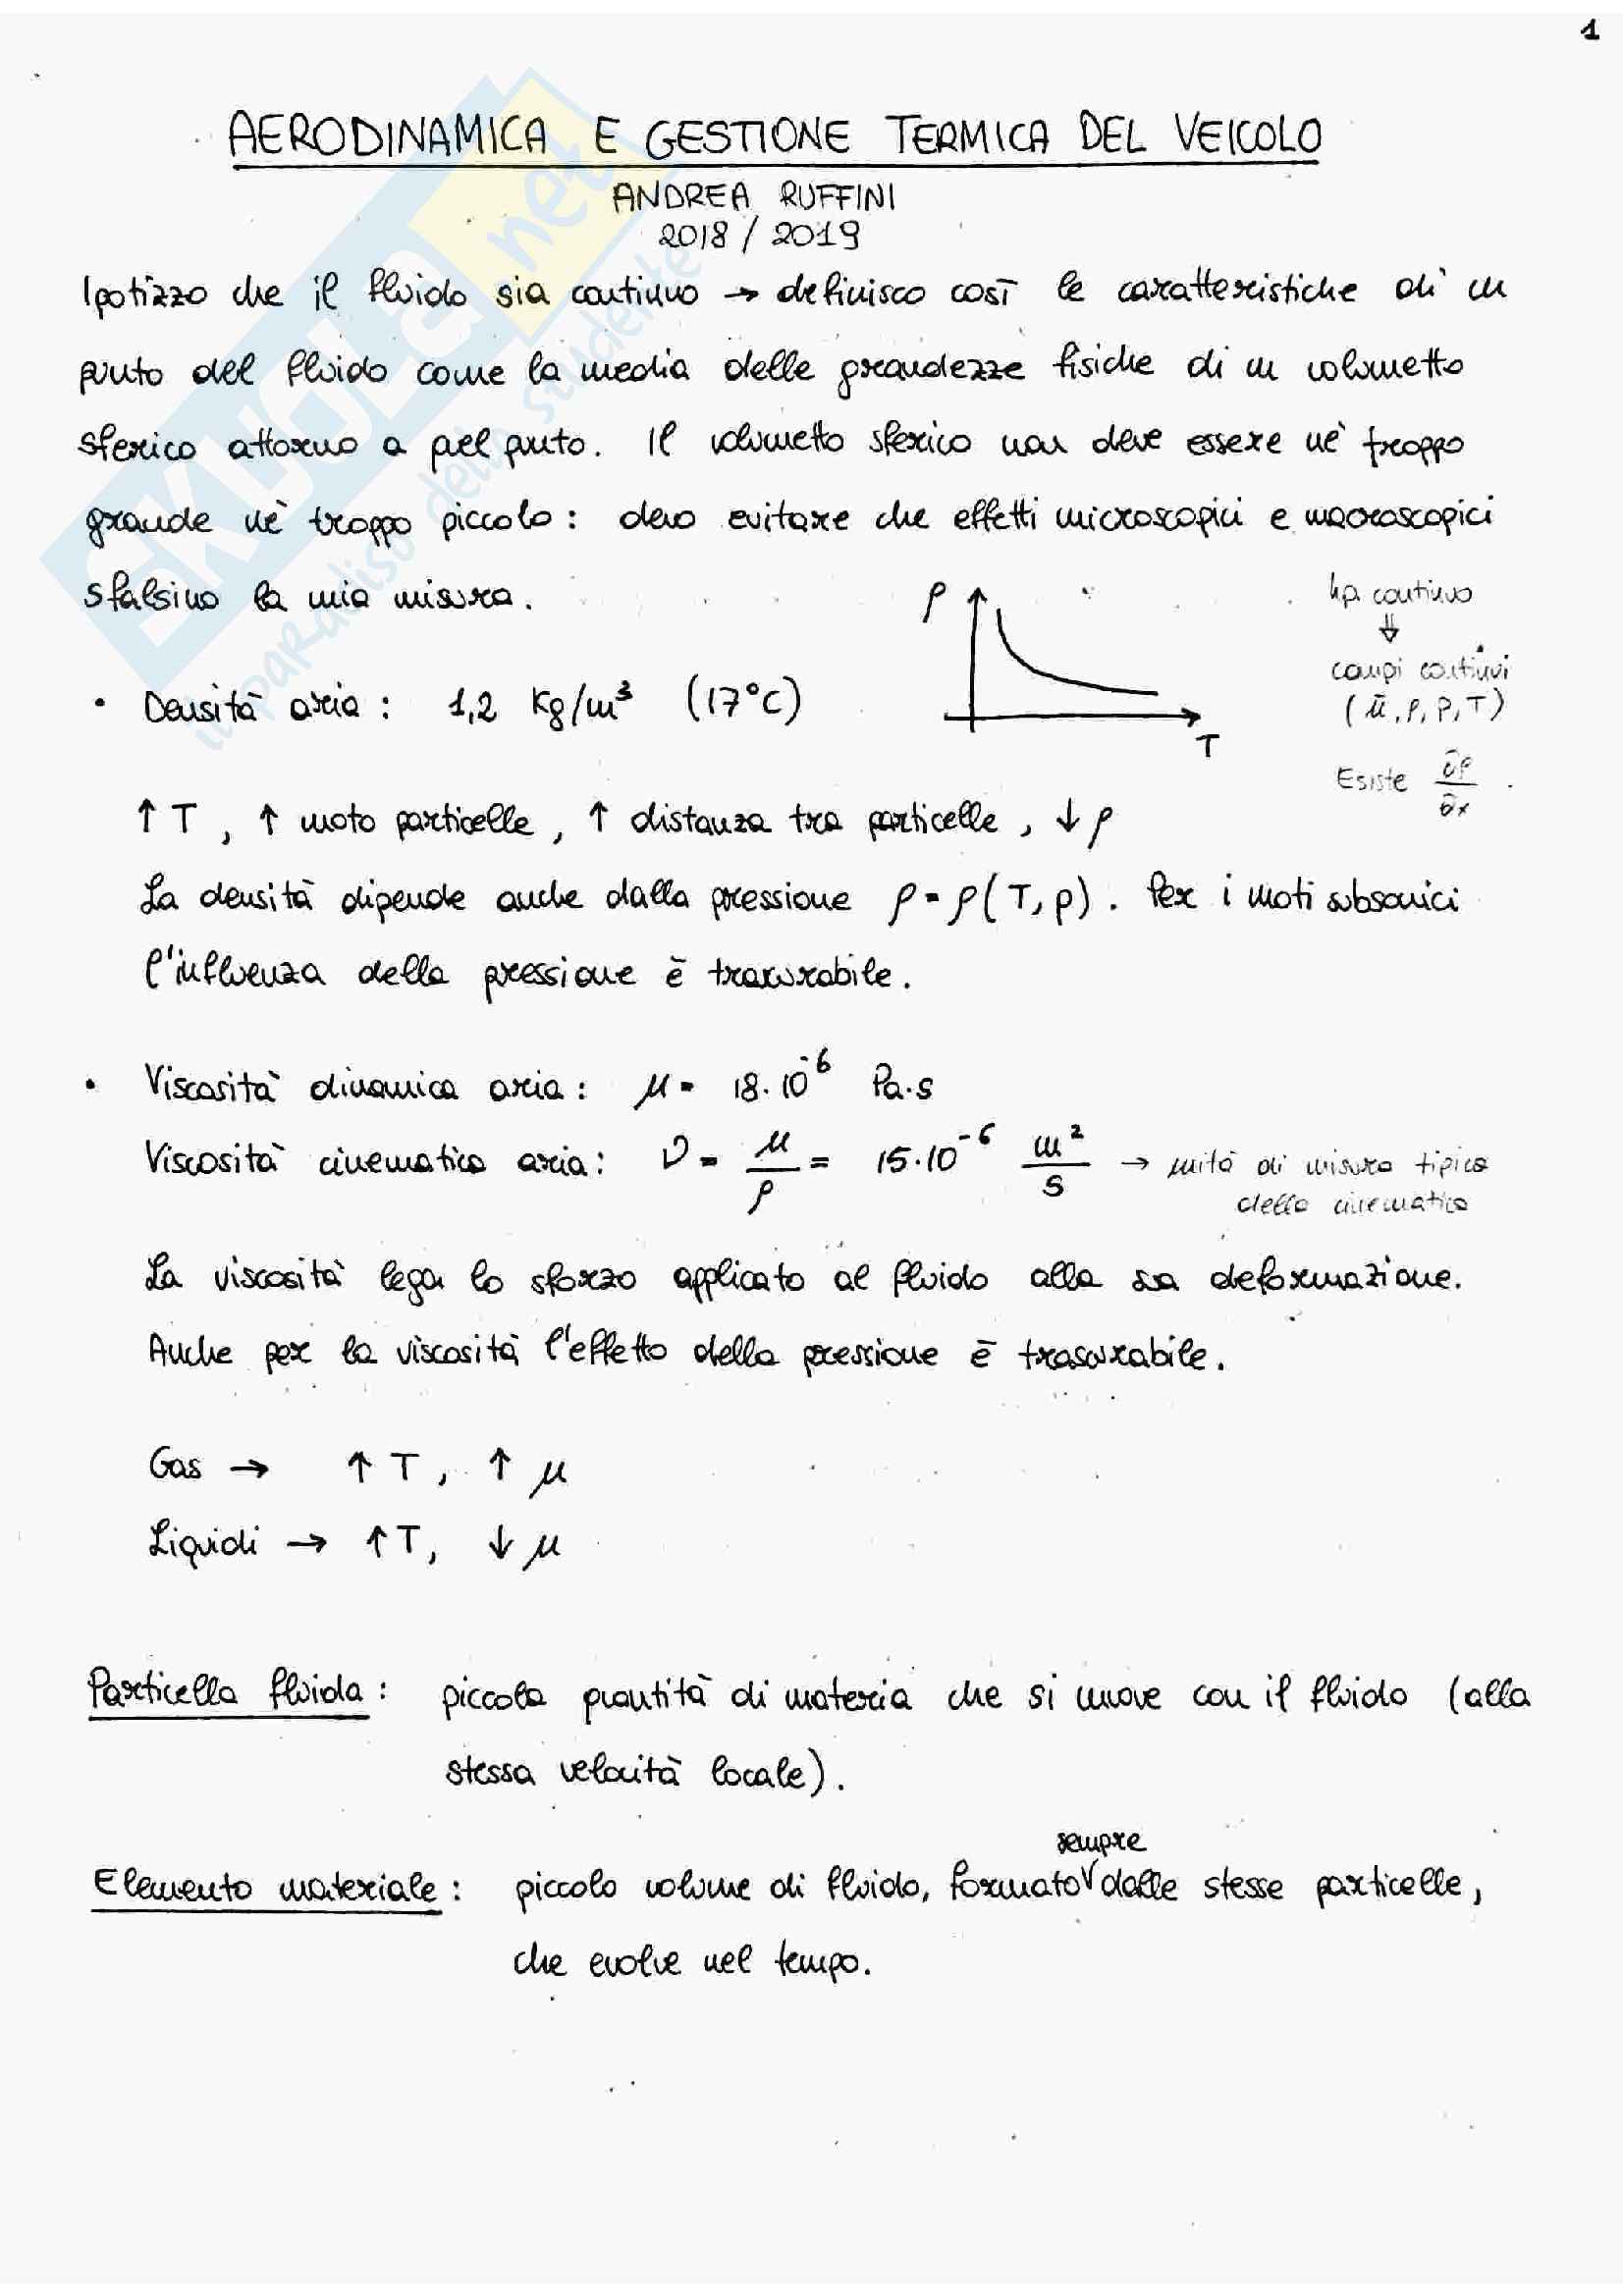 1
AERODINAMICA E GESTIONE TERMICA DEL VEICOLO
ANDREA RUFFINI
2018 / 2019
Ipotizzo che il fluido sia continuo → definisco così le caratteristiche di un
punto del fluido come la media delle grandezze fisiche di un volumetto
sferico attorno a quel punto. Il volumetto sferico non deve essere nè troppo
grande nè troppo piccolo : devo evitare che effetti microscopici e macroscopici
sfalsino la mia misura.
ρ
T
hp continuo
⇓
campi continui
(ū, ρ, p, T)
Esiste ∂ρ/∂x
• Densità aria : 1,2 Kg/m³ (17°C)
↑ T , ↑ moto particelle , ↑ distanza tra particelle , ↓ ρ
La densità dipende anche dalla pressione ρ = ρ(T, p) . Per i moti subsonici
l'influenza della pressione è trascurabile.
• Viscosità dinamica aria : μ = 18·10⁻⁶ Pa·s
Viscosità cinematica aria : ν = μ/ρ = 15·10⁻⁶ m²/s → unità di misura tipica
della cinematica
La viscosità lega lo sforzo applicato al fluido alla sua deformazione.
Anche per la viscosità l'effetto della pressione è trascurabile.
Gas → ↑ T , ↑ μ
Liquidi → ↑ T, ↓ μ
Particella fluida : piccola quantità di materia che si muove con il fluido (alla
stessa velocità locale).
sempre
Elemento materiale : piccolo volume di fluido, formato dalle stesse particelle,
che evolve nel tempo.
SKUOLA.net
il paradiso dello studente